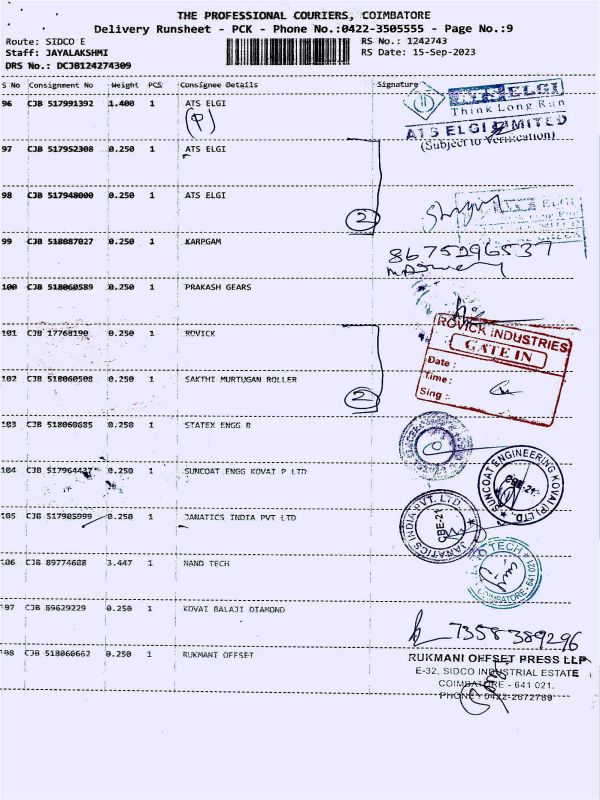 THE PROFESSIONAL COURIERS, COIMBATORE
Delivery Runsheet - PCK - Phone No.:0422-3505555 - Page No.:9
Route: SIDCO E RS No.: 1242743
Staff: JAYALAKSHMI RS Date: 15-Sep-2023
DRS No.: DCJB124274309
S No Consignment No Weight PCS Consignee Details Signature
96 CJB 517991392 1.400 1 ATS ELGI
(P)
ELGI
Think Long Run
ATS ELGI LIMITED
(Subject to Verification)
97 CJB 517952308 0.250 1 ATS ELGI
98 CJB 517948000 0.250 1 ATS ELGI
2
ELGI
99 CJB 518087027 0.250 1 KARPGAM
8675296537
100 CJB 518060589 0.250 1 PRAKASH GEARS
101 CJB 17768190 0.250 1 ROVICK
ROVICK INDUSTRIES
GATE IN
Date :
Time :
Sing :
102 CJB 518060508 0.250 1 SAKTHI MURTUGAN ROLLER
2
103 CJB 518060685 0.250 1 STATEX ENGG B
104 CJB 517964437 0.250 1 SUNCOAT ENGG KOVAI P LTD
SUNCOAT ENGINEERING KOVAI (P) LTD
CBE-21
105 CJB 517905999 0.250 1 JANATICS INDIA PVT LTD
JANATICS INDIA PVT. LTD.
CBE-21
106 CJB 89774688 3.447 1 NAND TECH
TECH
COIMBATORE - 641 021
107 CJB 89629229 0.250 1 KOVAI BALAJI DIAMOND
7358389296
108 CJB 518060662 0.250 1 RUKMANI OFFSET
RUKMANI OFFSET PRESS LLP
E-32, SIDCO INDUSTRIAL ESTATE
COIMBATORE - 641 021.
PHONE : 0422-2672789